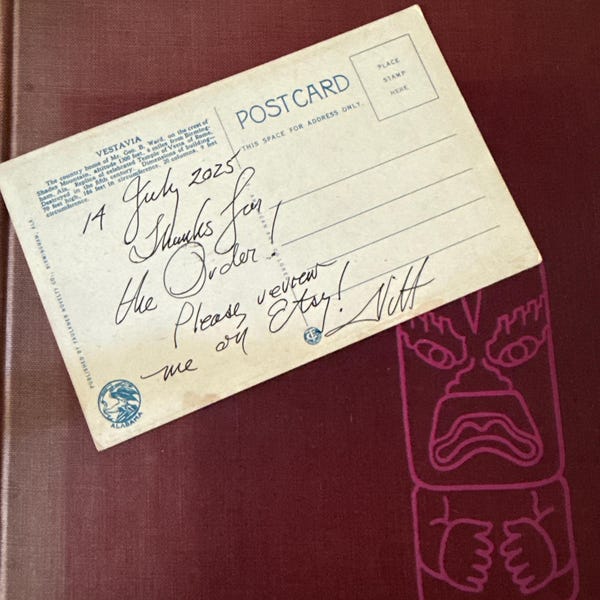 VESTAVIA
The country home of Mr. Geo. B. Ward, on the crest of
Shades Mountain, altitude 1200 feet, 4 miles from Birming-
ham, Ala. Replica of celebrated Temple of Vesta of Rome.
Destroyed in the fifth century. Dimensions of building—
70 feet high, 184 feet in circumference. 20 columns, 9 feet
circumference.
14 July 2025
Thanks for
the Order!
Please review
me on Etsy!
POST CARD
THIS SPACE FOR ADDRESS ONLY.
PLACE
STAMP
HERE
PUBLISHED BY FAULKNER NOVELTY CO., BIRMINGHAM, ALA.
ALABAMA